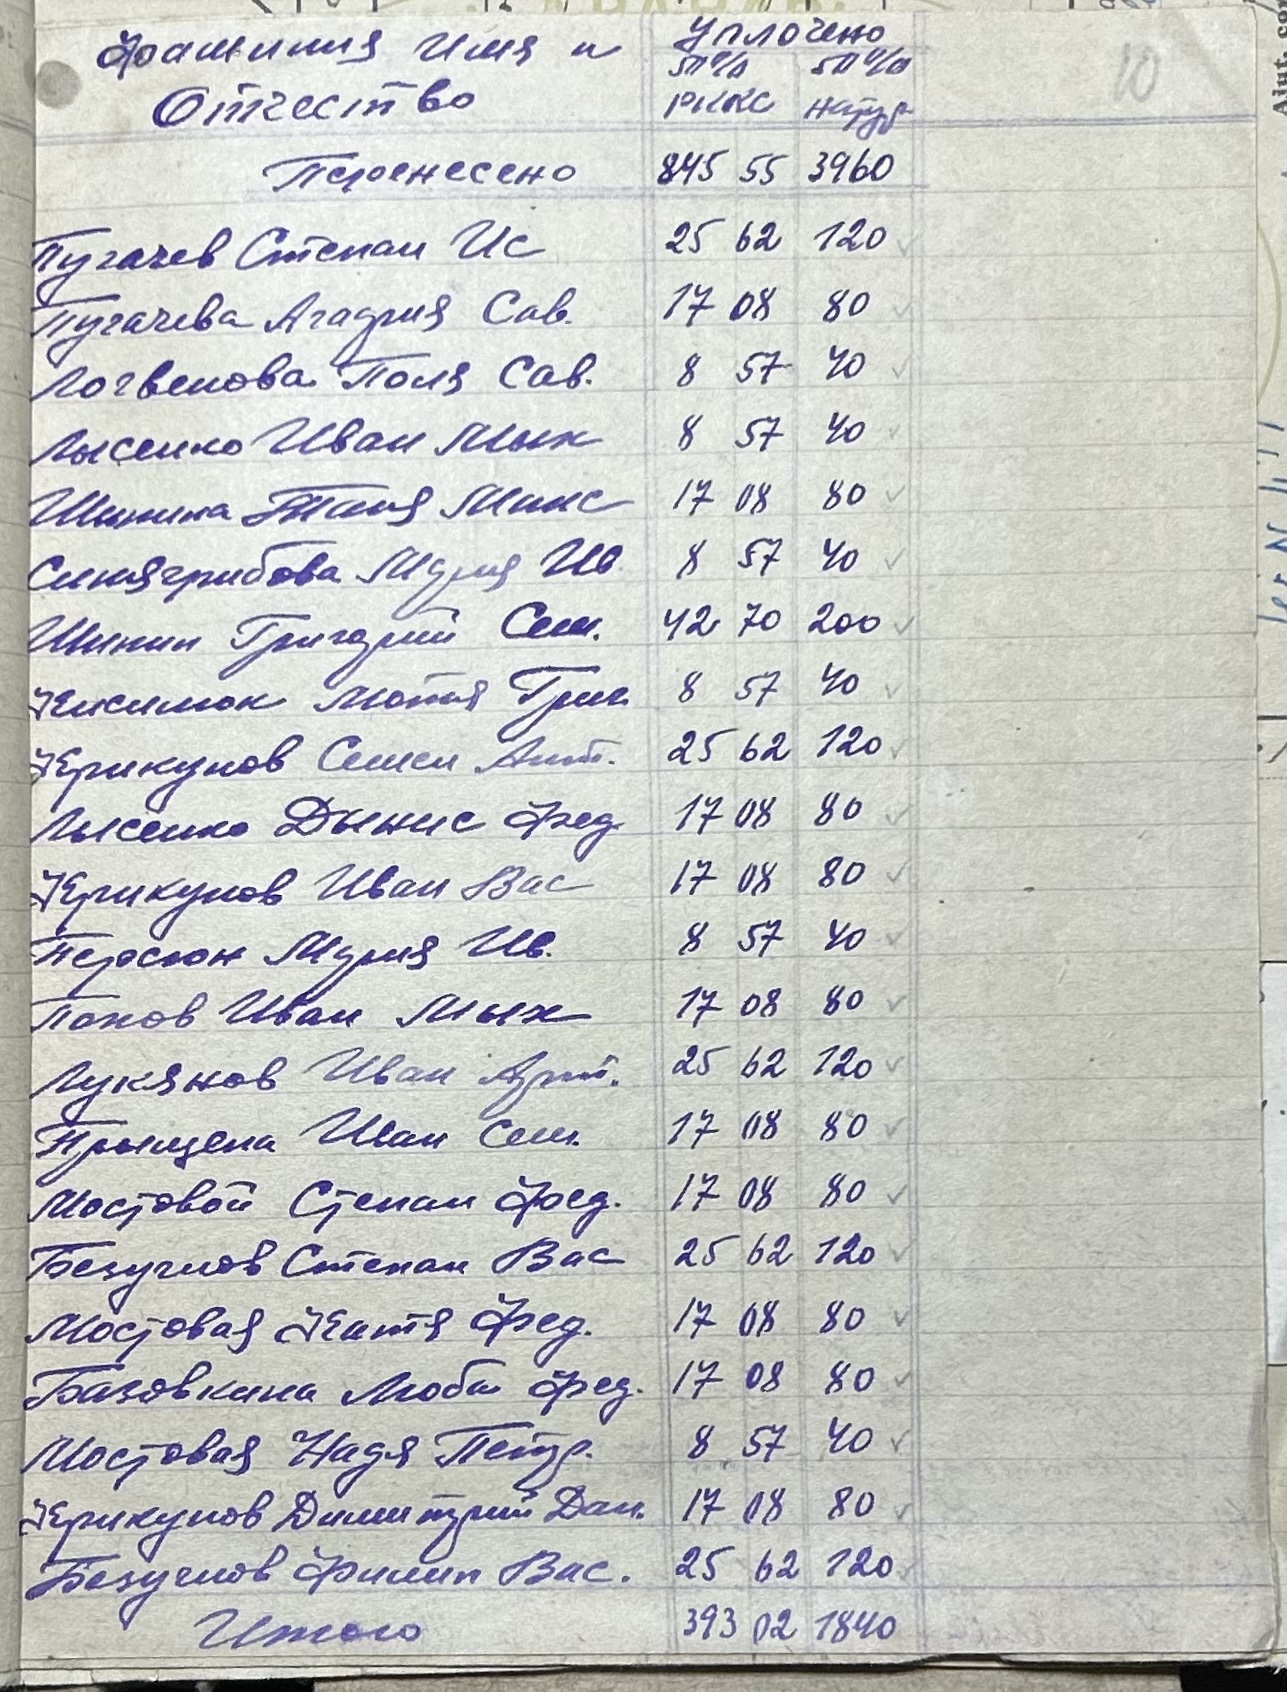 Фамилия Имя и Уплочено
50% 50%
Отчество РККС натур
10
Перенесено 845 55 3960
Пугачев Степан Ис 25 62 120
Пугачева Агафия Сав. 17 08 80
Логвенова Поля Сав. 8 57 40
Лысенко Иван Мых 8 57 40
Шинина Таня Макс 17 08 80
Синягрибова Мария Ив. 8 57 40
Шинин Григорий Сем. 42 70 200
Кисилюк Мотя Григ. 8 57 40
Керикунов Семен Ант. 25 62 120
Лысенко Дынис Фед. 17 08 80
Керикунов Иван Вас 17 08 80
Персюн Мария Ив. 8 57 40
Попов Иван Мых 17 08 80
Лукянов Иван Арт. 25 62 120
Прыщепа Иван Сем. 17 08 80
Мостовой Степан Фед. 17 08 80
Безуглов Степан Вас 25 62 120
Мостовая Катя Фед. 17 08 80
Базовкина Люба Фед. 17 08 80
Мостовая Надя Петр. 8 57 40
Керикунов Димитрий Дан. 17 08 80
Безуглов Филип Вас. 25 62 120
Итого 393 02 1840